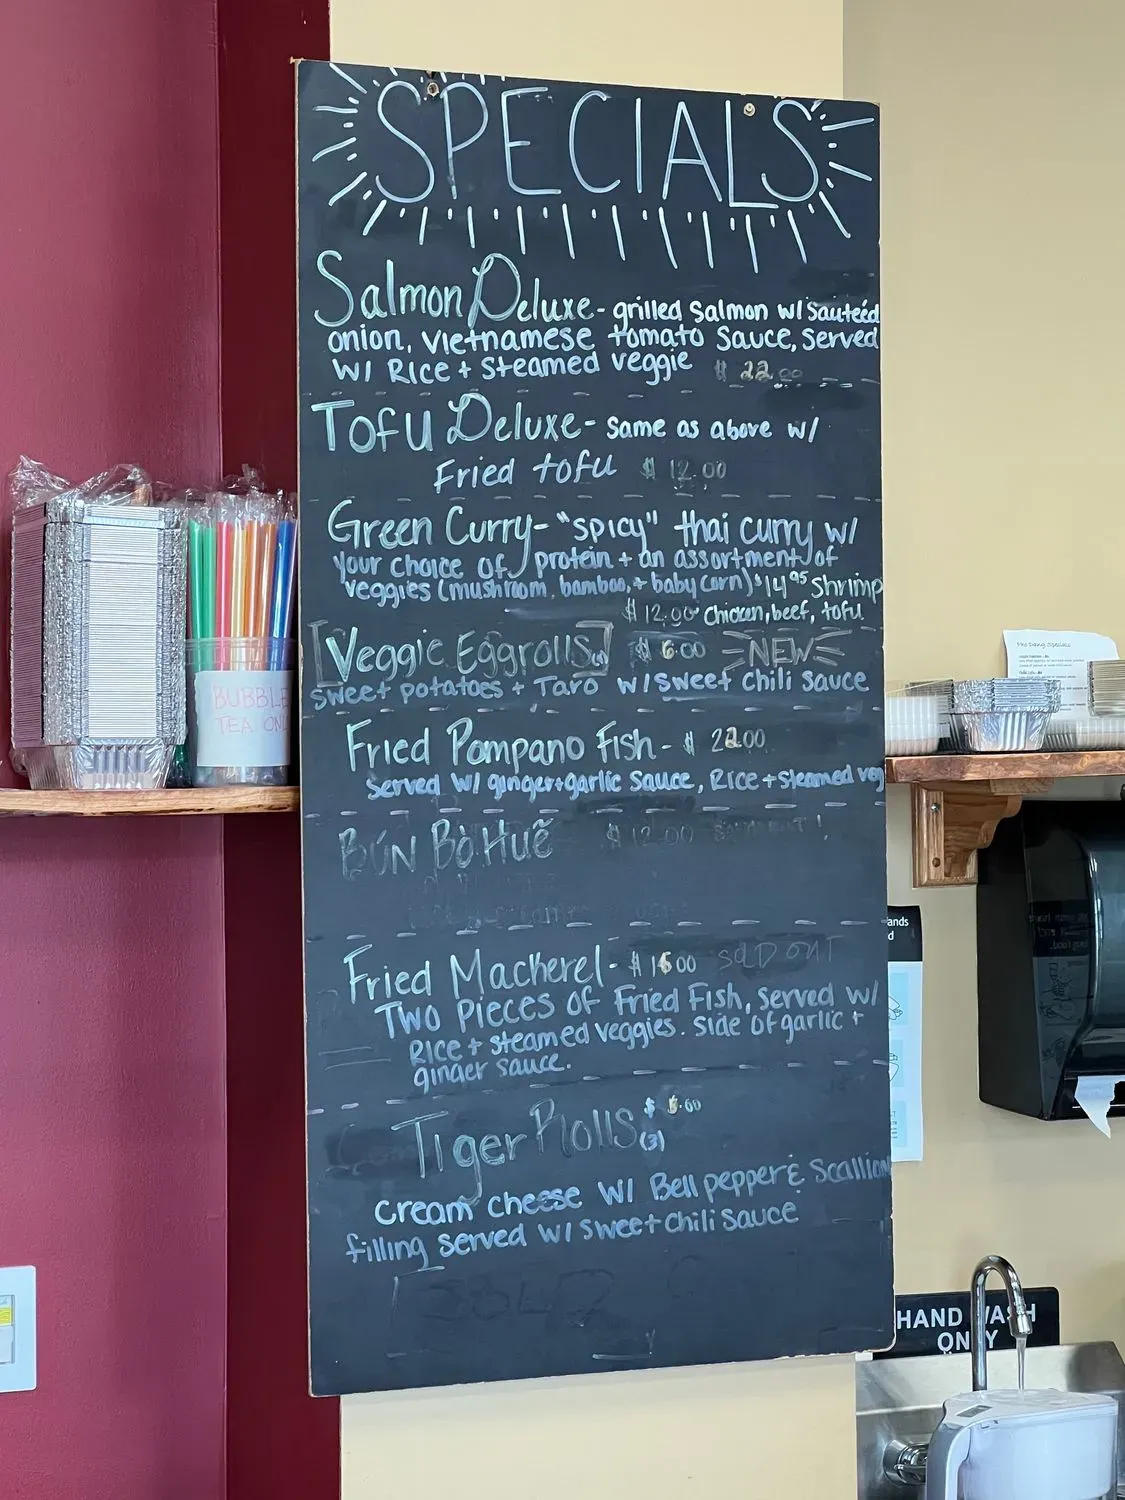 SPECIALS
Salmon Deluxe - grilled salmon w/ sauteéd
onion, vietnamese tomato sauce, served
w/ Rice + steamed veggie $22.00
Tofu Deluxe - same as above w/
Fried tofu $12.00
Green Curry - "spicy" thai curry w/
your choice of protein + an assortment of
veggies (mushroom, bamboo, + baby corn) $14.95 Shrimp
$12.00 Chicken, beef, tofu
[Veggie Eggrolls] $6.00 NEW
sweet potatoes + Taro w/ sweet chili sauce
Fried Pompano Fish - $22.00
served w/ ginger + garlic sauce, Rice + steamed veg
BÚN BÒ HUẾ $12.00
Fried Mackerel - $16.00 SOLD OUT
Two pieces of Fried Fish, served w/
Rice + steamed veggies. Side of garlic +
ginger sauce.
Tiger Rolls (3)
cream cheese w/ Bell pepper & Scallion
filling served w/ sweet chili sauce
BUBBLE
TEA ONL
Pho Dang Specials
ands
d
HAND WASH
ONLY